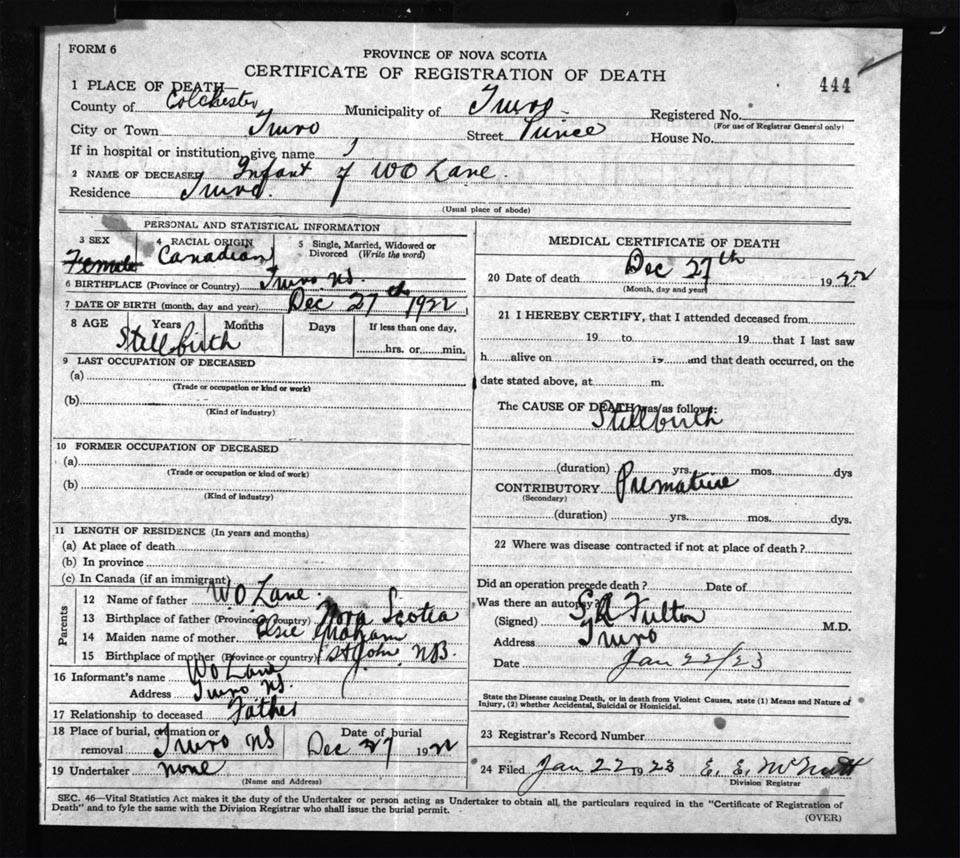 FORM 6
PROVINCE OF NOVA SCOTIA
CERTIFICATE OF REGISTRATION OF DEATH
444
1 PLACE OF DEATH—
County of Colchester Municipality of Truro Registered No.
(For use of Registrar General only)
City or Town Truro Street Prince House No.
If in hospital or institution, give name
2 NAME OF DECEASED Infant of W O Lane.
Residence Truro.
(Usual place of abode)
PERSONAL AND STATISTICAL INFORMATION
3 SEX Female
4 RACIAL ORIGIN Canadian
5 Single, Married, Widowed or Divorced (Write the word)
6 BIRTHPLACE (Province or Country) Truro NS.
7 DATE OF BIRTH (month, day and year) Dec 27th 1922
8 AGE Years Months Days If less than one day,
Stillbirth hrs. or min.
9 LAST OCCUPATION OF DECEASED
(a)
(Trade or occupation or kind or work)
(b)
(Kind of industry)
10 FORMER OCCUPATION OF DECEASED
(a)
(Trade or occupation or kind of work)
(b)
(Kind of industry)
11 LENGTH OF RESIDENCE (In years and months)
(a) At place of death
(b) In province
(c) In Canada (if an immigrant)
Parents
12 Name of father W O Lane.
13 Birthplace of father (Province or Country) Nova Scotia
14 Maiden name of mother Elsie Graham
15 Birthplace of mother (Province or country) St John NB.
16 Informant's name W O Lane
Address Truro NS.
17 Relationship to deceased Father
18 Place of burial, cremation or removal Truro NS
Date of burial Dec 27 1922
19 Undertaker none
(Name and Address)
MEDICAL CERTIFICATE OF DEATH
20 Date of death Dec 27th 1922
(Month, day and year)
21 I HEREBY CERTIFY, that I attended deceased from
19 to 19 that I last saw
h alive on 19 and that death occurred, on the
date stated above, at m.
The CAUSE OF DEATH was as follows:
Stillbirth
(duration) yrs. mos. dys
CONTRIBUTORY Premature
(Secondary)
(duration) yrs. mos. dys.
22 Where was disease contracted if not at place of death?
Did an operation precede death? Date of
Was there an autopsy?
(Signed) S R Fulton M.D.
Address Truro
Date Jan 22/23
State the Disease causing Death, or in death from Violent Causes, state (1) Means and Nature of
Injury, (2) whether Accidental, Suicidal or Homicidal.
23 Registrar's Record Number
24 Filed Jan 22 1923 E. E. McNutt
Division Registrar
SEC. 46—Vital Statistics Act makes it the duty of the Undertaker or person acting as Undertaker to obtain all the particulars required in the "Certificate of Registration of
Death" and to fyle the same with the Division Registrar who shall issue the burial permit.
(OVER)